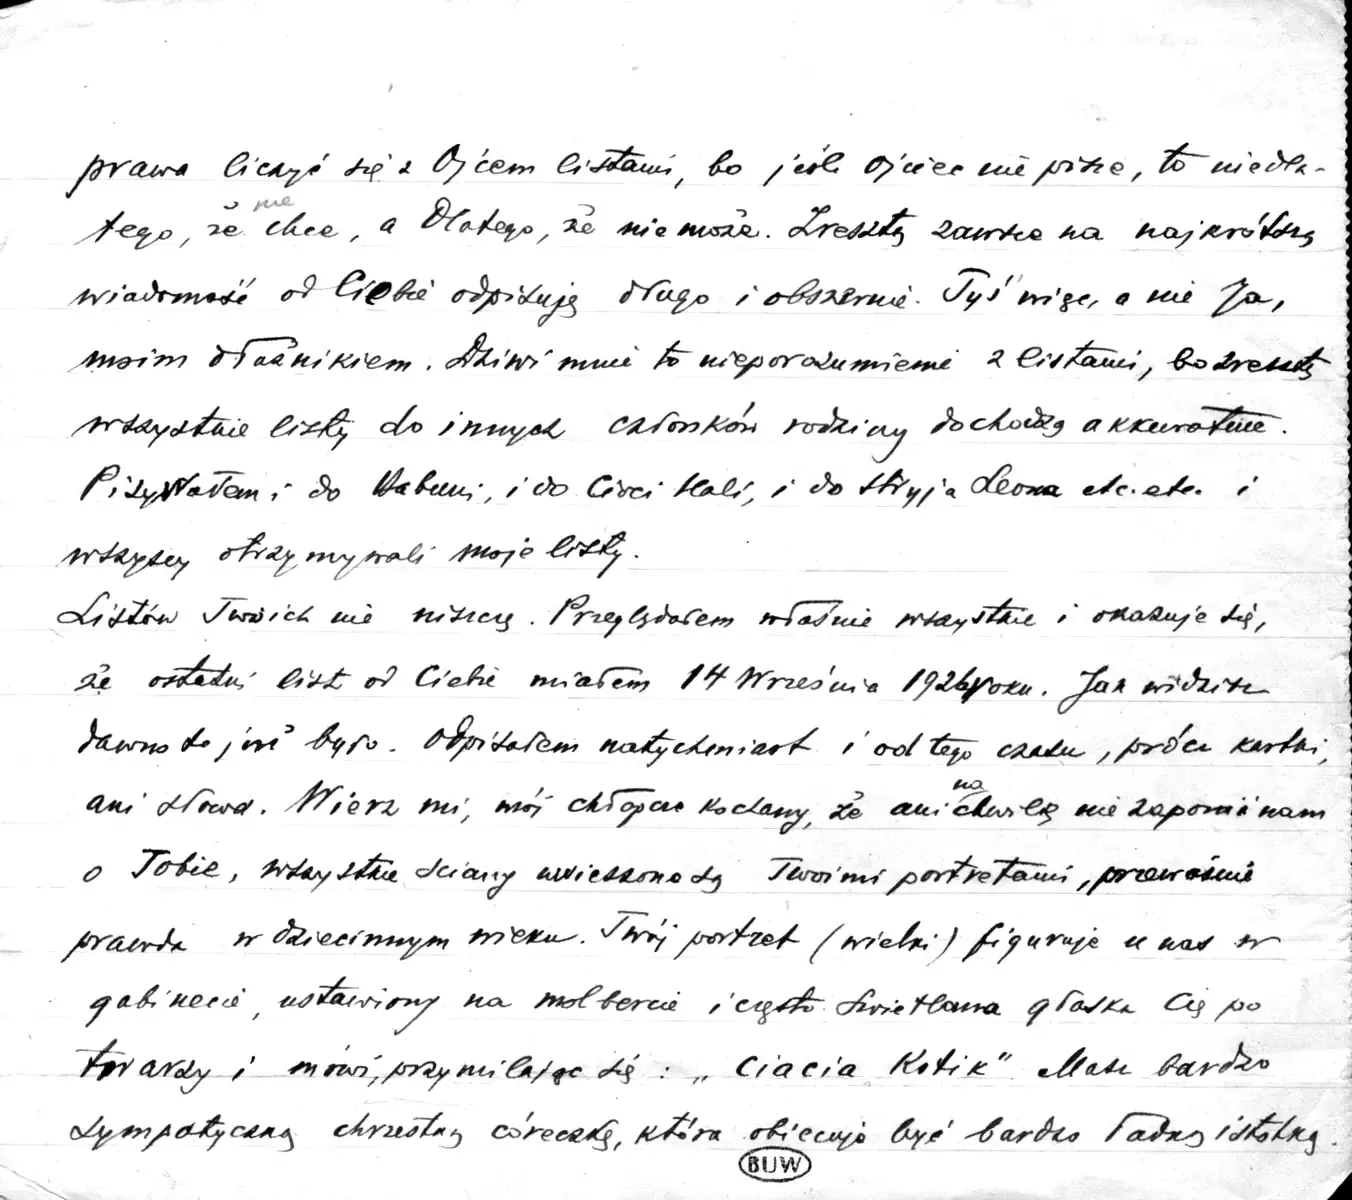 prawa liczyć się z Ojcem listami, bo jeśli Ojciec nie pisze, to niedla-
tego, że nie chce, a Dlatego, że nie może. Zresztą zawsze na najkrótszą
wiadomość od Ciebie odpisuję długo i obszernie. Tyś więc, a nie Ja,
moim dłużnikiem. Dziwi mnie to nieporozumienie z listami, bo zresztą
wszystkie listy do innych członków rodziny dochodzą akkuratnie.
Pisywałem i do Babuni, i do Cioci Hali, i do stryja Leona etc. etc. i
wszyscy otrzymywali moje listy.
Listów Twoich nie niszczę. Przeglądałem właśnie wszystkie i okazuje się,
że ostatni list od Ciebie miałem 14 Września 1926 roku. Jak widzisz
dawno to już było. Odpisałem natychmiast i od tego czasu, prócz kartki,
ani słowa. Wierz mi, mój chłopcze kochany, że ani na chwilę nie zapominam
o Tobie, wszystkie ściany uwieszone są Twoimi portretami, przeważnie
prawda w dziecinnym wieku. Twój portret (wielki) figuruje u nas w
gabinecie, ustawiony na molbercie i często Swietłana głaska Cię po
twarzy i mówi, przymilając się: „Ciacia Kotik" Masz bardzo
sympatyczną chrzestną córeczkę, która obiecuje być bardzo ładną istotką.
BUW